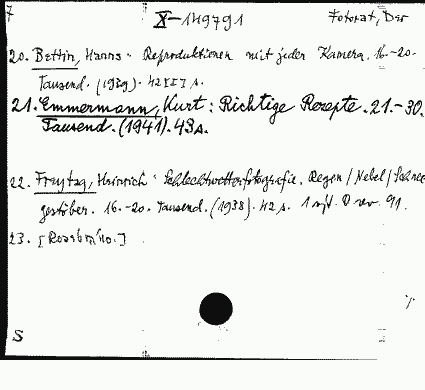 7 X-149791 Fotorat, Der
20. Bettin, Hanns: Reproduktionen mit jeder Kamera. 16.-20.
Tausend. (1939). 42 [I] S.
21. Emmermann, Kurt: Richtige Rezepte. 21.-30.
Tausend. (1941). 43 S.
22. Freytag, Heinrich: Schlechtwetterfotografie. Regen/Nebel/Schnee
gestöber. 16.-20. Tausend. (1938). 42 S.
23.
S